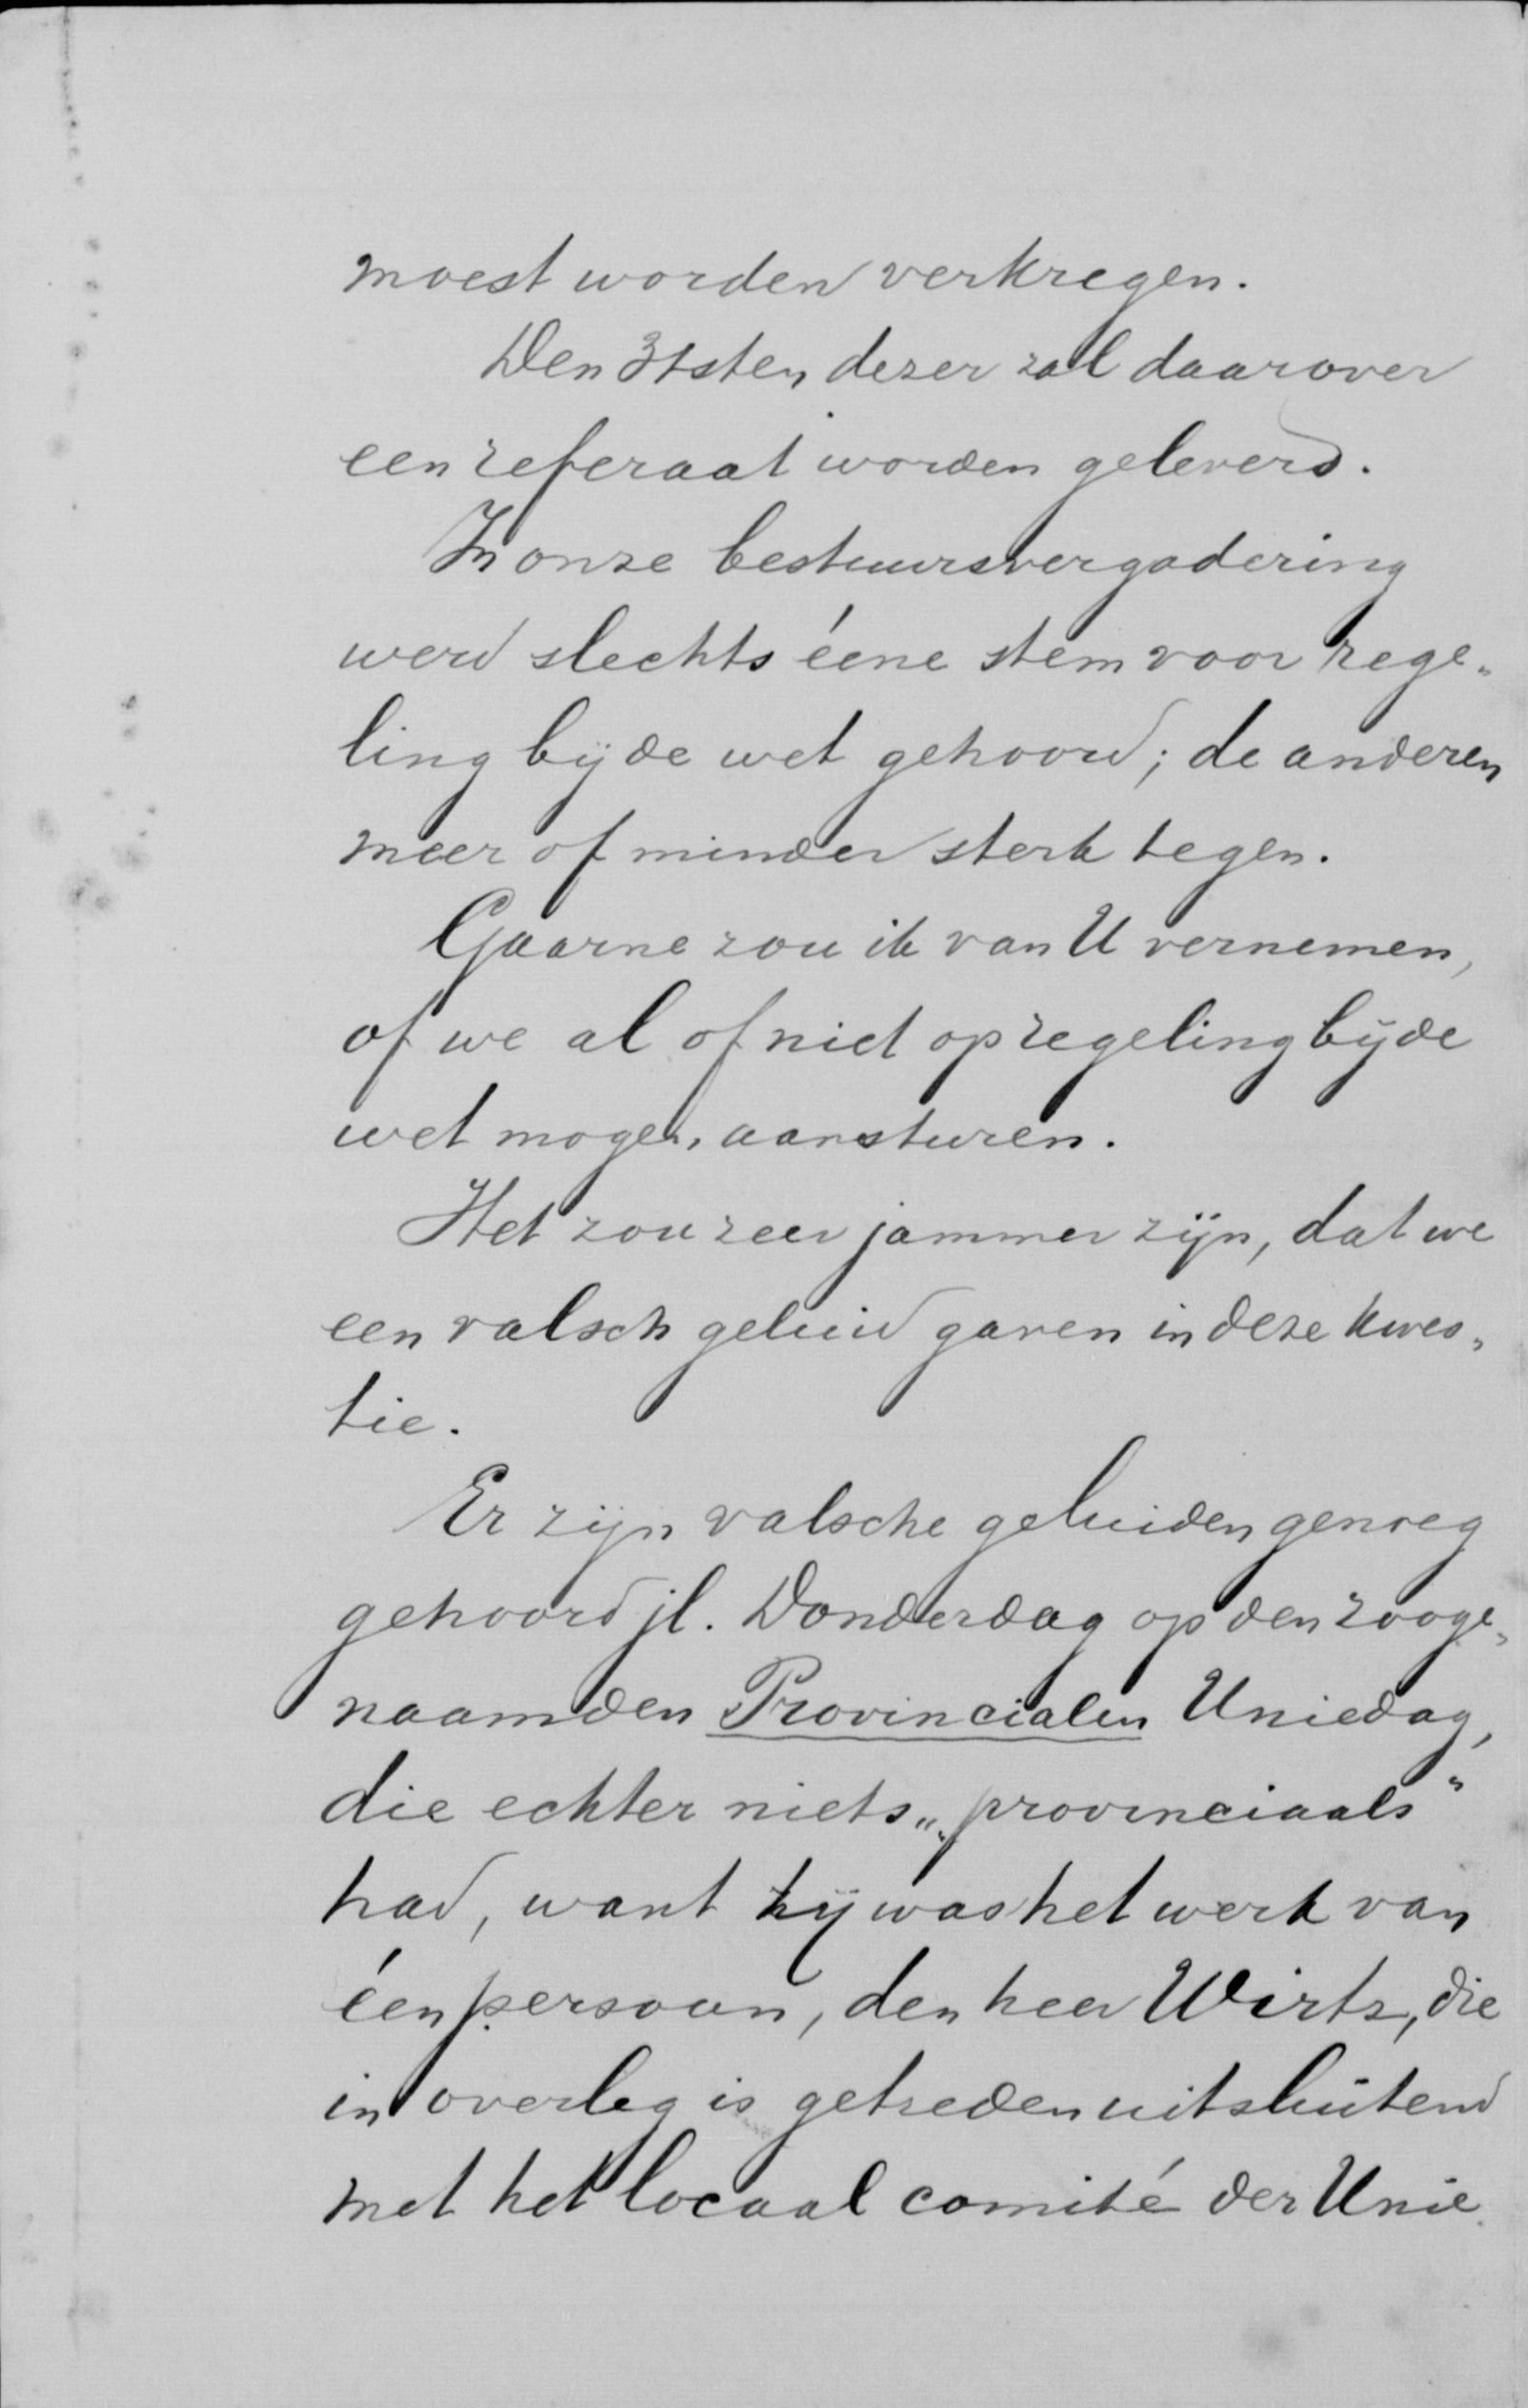 moest worden verkregen.
Den 31sten dezer zal daarover
een referaat worden geleverd.
In onze bestuursvergadering
werd slechts ééne stem voor rege„
ling bij de wet gehoord; de anderen
meer of minder sterk tegen.
Gaarne zou ik van U vernemen,
of we al of niet op regeling bij de
wet mogen aansturen.
Het zou zeer jammer zijn, dat we
een valsch geluid gaven in deze kwes„
tie.
Er zijn valsche geluiden genoeg
gehoord jl. Donderdag op den zooge„
naamden Provincialen Uniedag,
die echter niets „provinciaals"
had, want hij was het werk van
één persoon, den heer Wirtz, die
in overleg is getreden uitsluitend
met het locaal comité der Unie